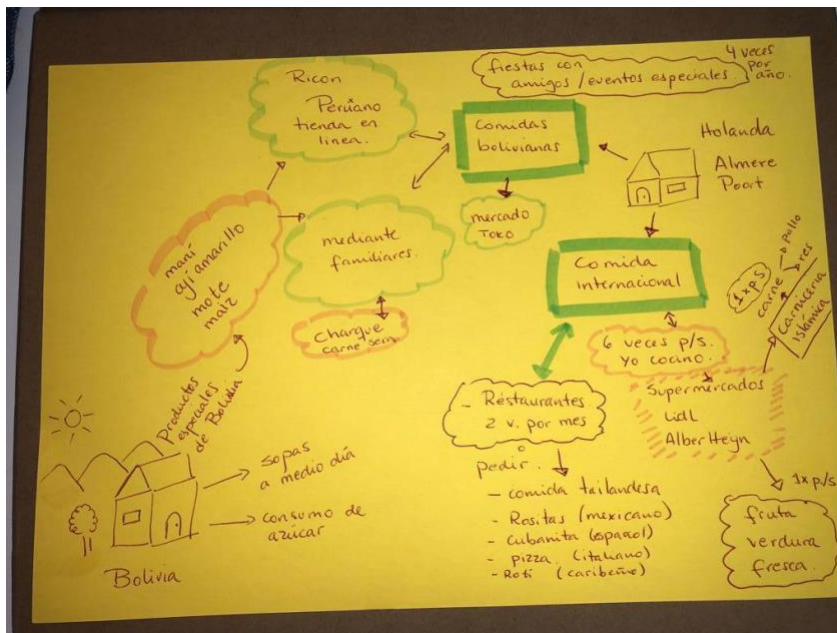 Ricon
Perüano
tienda en
linea.
fiestas con
amigos / eventos especiales.
4 veces
por
año.
Comidas
bolivianas
Holanda
Almere
Poort
mercado
TOKO
maní
aji amarillo
mote
maiz
mediante
familiares.
charque
carne seca
Comida
internacional
1 x p/s
carne → pollo
res
Carniceria
islámica
6 veces p/s.
Yo cocino.
Supermercados
Lidl
Alber Heyn
Productos
especiales
de Bolivia
- Réstaurantes
2 v. por mes
o
pedir.
- comida tailandesa
- Rositas (mexicano)
- Cubanita (español)
- pizza (italiano)
- Roti (caribeño)
1x p/s
fruta
verdura
fresca.
sopas
a medio día
consumo de
azúcar
Bolivia